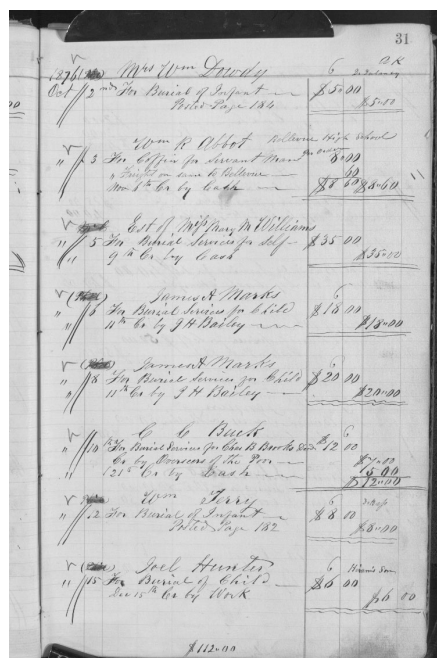 31
Mrs Wm Dowdy 6
1876
Oct 2nd For Burial of Infant $5.00
Posted Page 184 $5.00
Wm R Abbot Bellevue High School
" 3 For Coffin for Servant Man 8.00
" Freight on same to Bellevue 60
Nov 8th Cr by Cash $8 60 $8.60
Est of Miss Mary M Williams
" 5 For Burial Services for Self $35 00
" 9th Cr by Cash $35.00
James A Marks 6
" 6 For Burial Services for Child $18 00
" 11th Cr by J H Bailey $18.00
James A Marks 6
" 8 For Burial Services for Child $20 00
" 11th Cr by J H Bailey $20.00
C C Buck 6
" 10th For Burial Services for Chas B Brooks $12 00
Cr by Overseers of the Poor $7.00
" 21st Cr by Cash 5 00
$12.00
Wm Terry 6
" 12 For Burial of Infant $8 00
Posted Page 182 $8.00
Joel Hunter 6
" 15 For Burial of Child $6 00
Dec 15th Cr by Work $6 00
$112.00